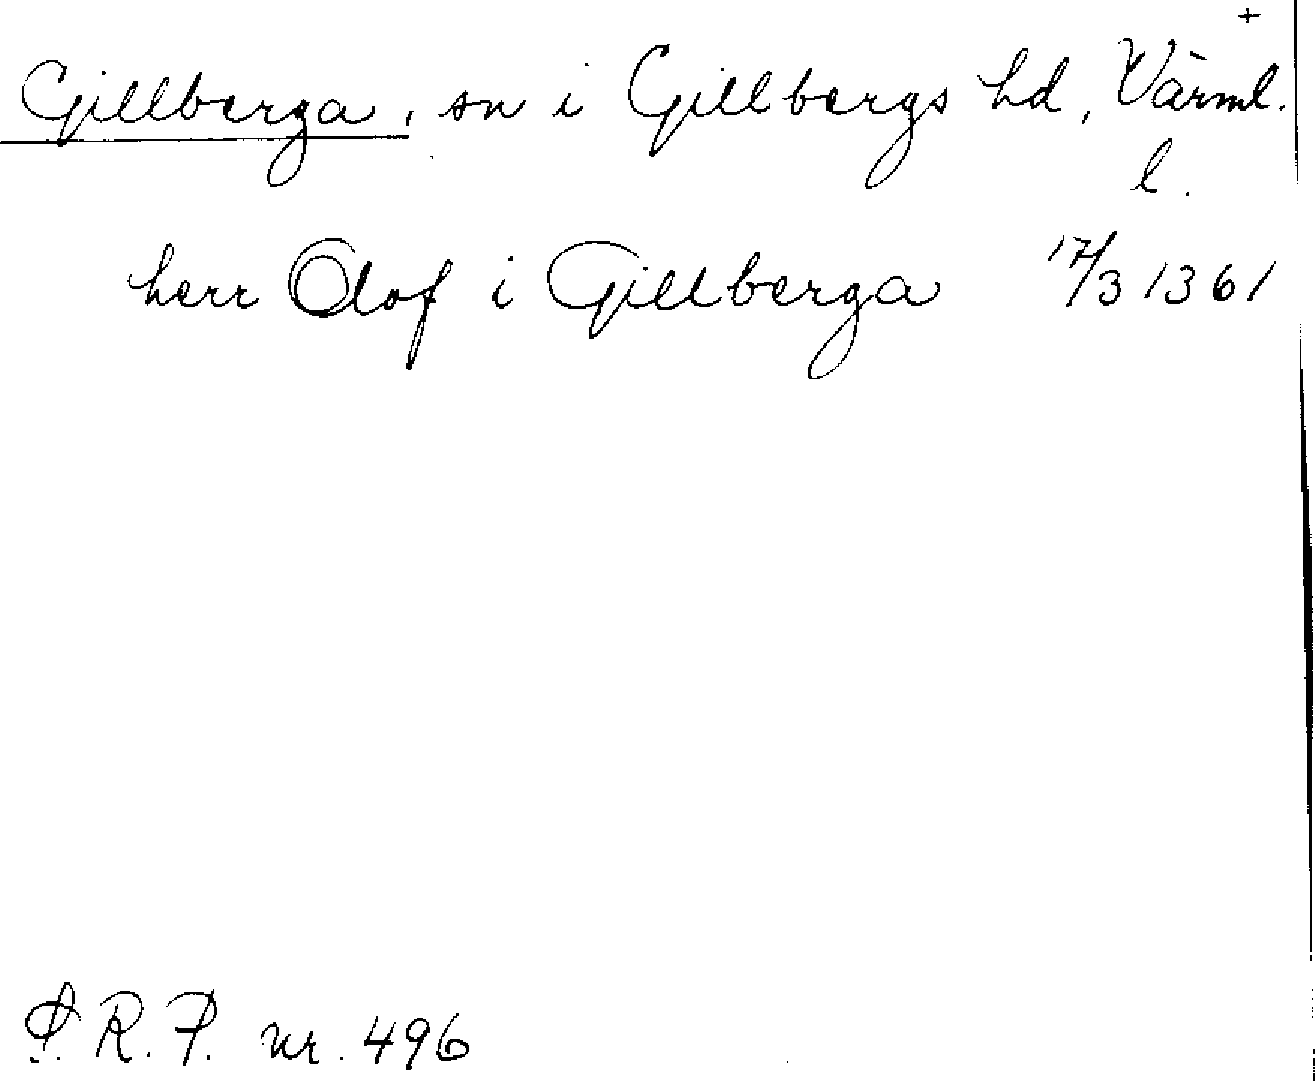 +
Gillberga, sn i Gillbergs hd, Värml.
l.
herr Olof i Gillberga 17/3 1361
S. R. P. nr. 496